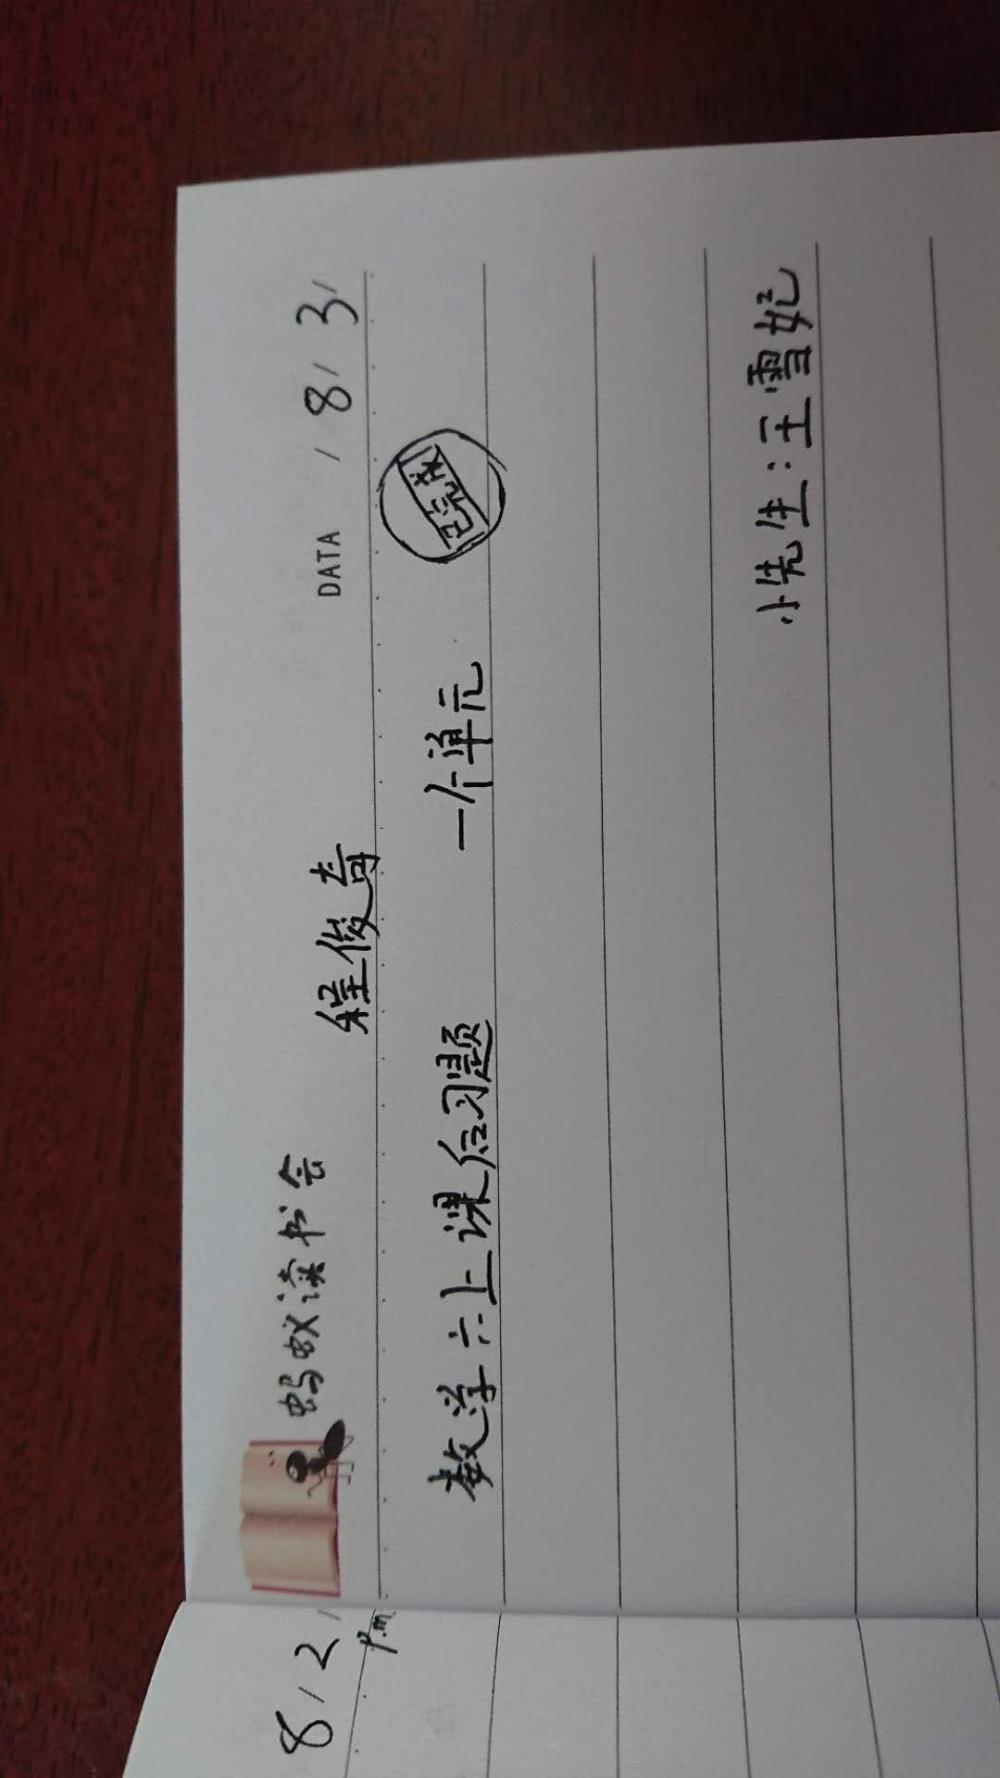 8 / 2 /
p.m.
蚂蚁读书会
程俊奇
DATA / 8 / 3 /
数学六上课后习题 一个单元
已完成
小先生：王雪妃